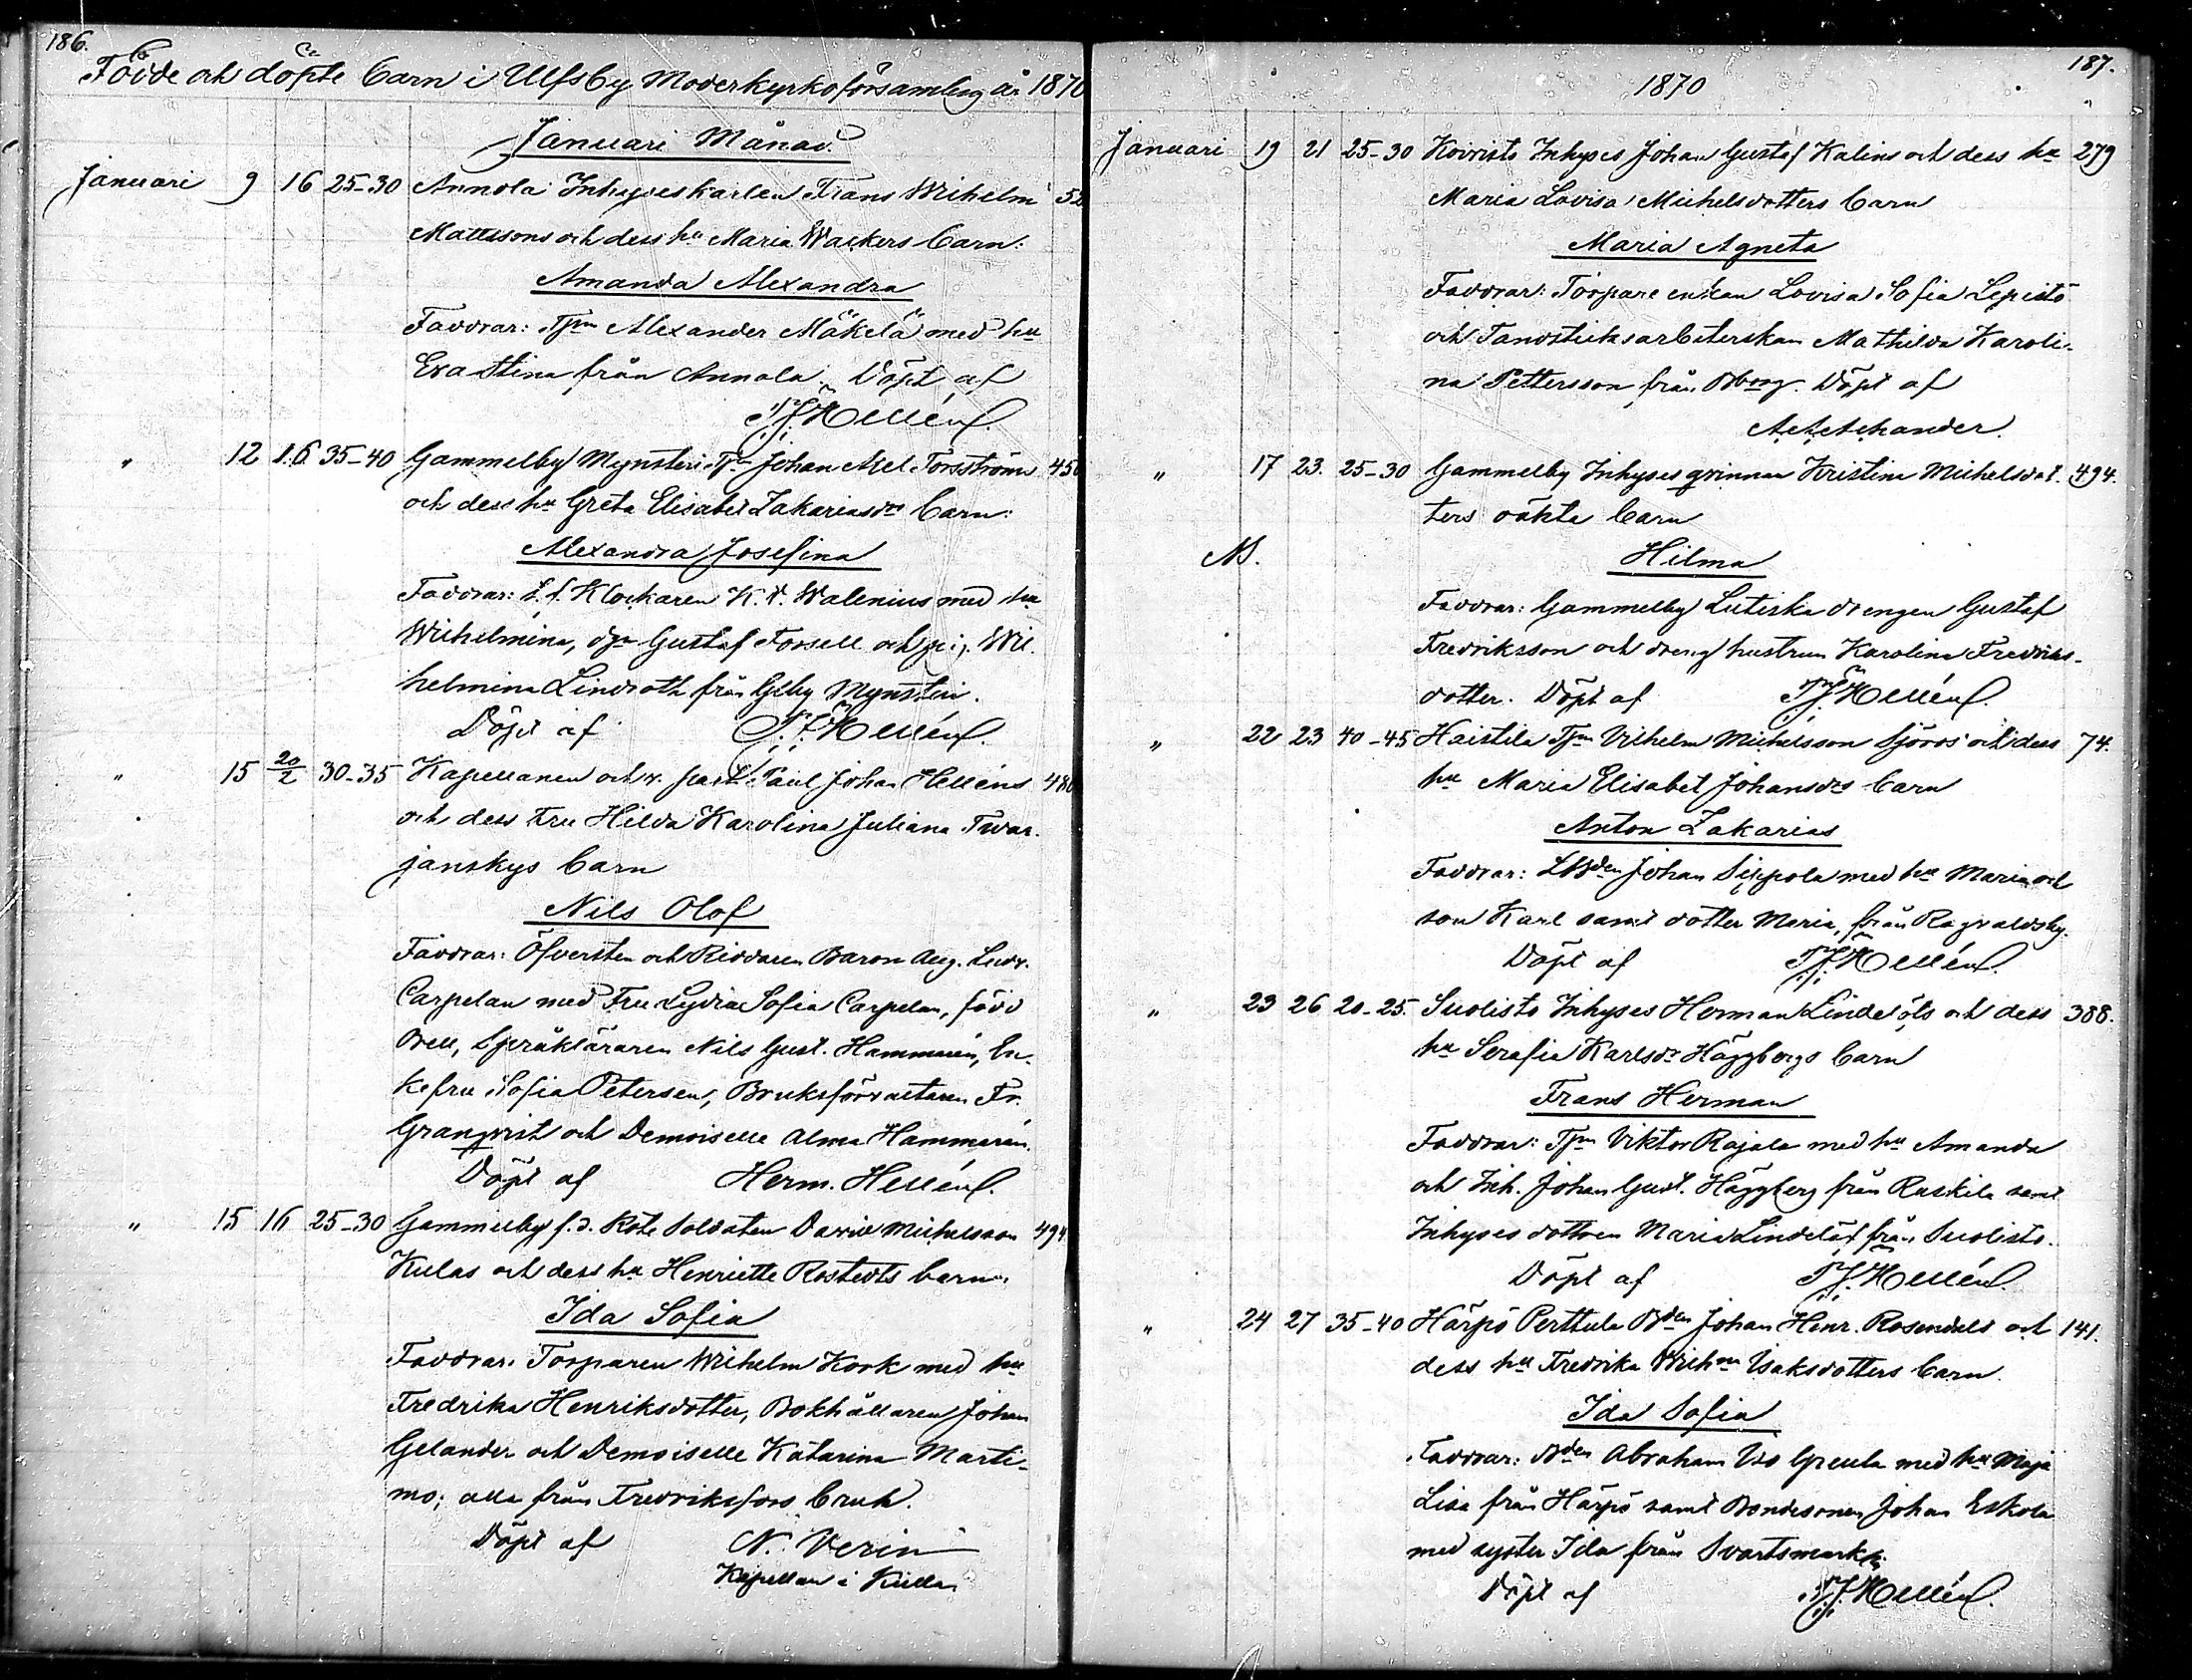 186.
Födde och döpte barn i Ulfsby Moderkyrkoförsamling år 1870
Januari Månad.
Januari 9 16 25-30 Annola Inhyseskarlen Frans Wilhelm 52
Mattssons och dess hu Maria Wackers barn:
Amanda Alexandra
Faddrar: Tjm Alexander Mäkelä med hu
Eva Stina från Annola. Döpt af
P.J. Hellén.
" 12 16 35-40 Gammelby Mynsteri Tjm Johan Axel Forsströms 450
och dess hu Greta Elisabet Zakariasdrs barn:
Alexandra Josefina
Faddrar: t.f. Klockaren K. V. Walenius med hu
Wilhelmina, dgn Gustaf Forsell och pig. Wil.
helmina Lindroth från Glby Mynsteri.
Döpt af P.J. Hellén.
" 15 20/2 30-35 Kapellanen och v. past. Paul Johan Helléns 480
och dess Fru Hilda Karolina Juliana Twar.
janskys barn
Nils Olof
Faddrar: Öfversten och Riddaren Baron Aug. Ludv.
Carpelan med Fru Lydia Sofia Carpelan, född
Orell, Språkläraren Nils Gust. Hammarén, En-
kefru Sofia Petersen, Bruksförvaltaren Fr.
Granqvist och Demoiselle Alma Hammarén.
Döpt af Herm. Hellén.
" 15 16 25-30 Gammelby f.d. Rote Soldaten David Michelsson 494
Kulas och dess hu Henriette Rostedts barn.
Ida Sofia
Faddrar: Torparen Wilhelm Kork med hu
Fredrika Henriksdotter, Bokhållaren Johan
Gelander och Demoiselle Katarina Marti-
mo; alla från Fredriksfors bruk.
Döpt af N. Verin
Kapellan i Kulla
187.
1870
Januari 19 21 25-30 Koivisto Inhyses Johan Gustaf Kalins och dess hu 279
Maria Lovisa Michelsdotters barn
Maria Agneta
Faddrar: Torpare enkan Lovisa Sofia Lepistö
och Tandsticksarbeterskan Mathilda Karoli-
na Pettersson från Bborg. Döpt af
" 17 23. 25-30 Gammelby Inhyses qvinnan Kristina Michelsdot. 494.
ters oäkta barn
NB.
Hilma
Faddrar: Gammelby Lutiska drengen Gustaf
Fredriksson och dreng hustrun Karolina Fredriks-
dotter. Döpt af P.J. Hellén.
" 22 23 40-45 Haistila Tjm Vilhelm Michelsson Sjöros och dess 74.
hu Maria Elisabet Johansdrs barn
Anton Zakarias
Faddrar: LBden Johan Sippola med hu Maria och
son Karl samt dotter Maria, från Ragvaldsby.
Döpt af P.J. Hellén.
" 23 26 20-25. Suolisto Inhyses Herman Lindelöfs och dess 388.
hu Serafia Karlsdr Häggbergs barn
Frans Herman
Faddrar: Tjm Viktor Rajala med hu Amanda
och Inh. Johan Gust. Häggberg från Ruskila samt
Inhyses dottren Maria Lindelöf från Suolisto.
Döpt af P.J. Hellén.
" 24 27 35-40 Härpö Perttula Bden Johan Henr. Rosendals och 141.
dess hu Fredrika Wilhna Isaksdotters barn.
Ida Sofia
Faddrar: Bden Abraham Iso Greula med hu Maja
Lisa från Härpö samt Bondesonen Johan Eskola
med syster Ida från Svartsmark.
Döpt af P.J. Hellén.